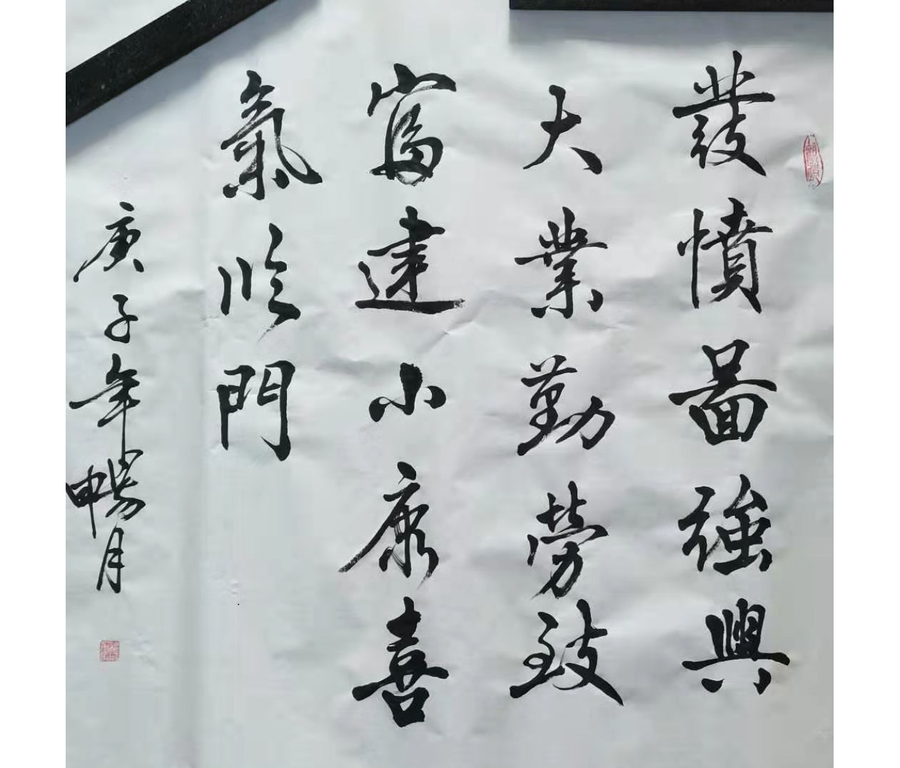 發憤啚強興
大業勤勞致
富建小康喜
氣临門
庚子年暢月